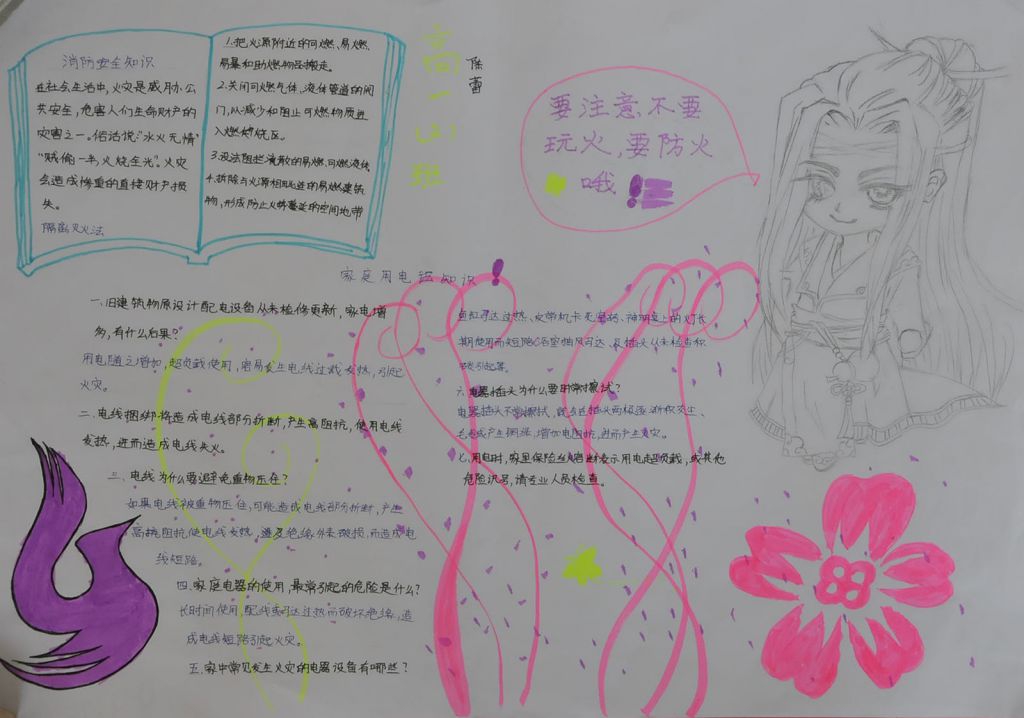 消防安全知识
在社会生活中,火灾是威胁公
共安全,危害人们生命财产的
灾害之一。俗话说:“水火无情”
“贼偷一半,火烧全光”。火灾
会造成惨重的直接财产损
失。
隔离灭火法
1.把火源附近的可燃、易燃、
易暴和助燃物品搬走。
2.关闭可燃气体、液体管道的阀
门,以减少和阻止可燃物质进
入燃烧区。
3.设法阻拦流散的易燃、可燃液体。
4.拆除与火源相毗连的易燃建筑
物,形成防止火势蔓延的空间地带
高一(2)班
陈蕾
要注意不要
玩火,要防火
哦!
家庭用电器知识!
一、旧建筑物原设计配电设备从未检修更新,家电增
多,有什么后果?
用电随之增加,超负载使用,容易发生电线过载发热,引起
火灾。
二、电线捆绑将造成电线部分折断,产生高阻抗,使用电线
发热,进而造成电线失火。
三、电线为什么要避免重物压住?
如果电线被重物压住,可能造成电线部分折断,产生
高擒阻抗使电线发热,遭及绝缘外表破损,而造成电
线短路。
四、家庭电器的使用,最常引起的危险是什么?
长时间使用,配线或马达过热而破坏绝缘,造
成电线短路引起火灾。
五、家中常见发生火灾的电器设备有哪些?
扇马达过热、皮带机卡死窒碍、神明桌上的灯长
期使用而短路、浴室抽风马达、及插头从未检查积
碳引起等。
六、电器插头为什么要时常擦拭?
电器插头不常擦拭,就会在插头两极逐渐积灰尘、
毛屑或产生铜绿,增加电阻抗,进而产生火灾。
七、用电时,家里保险丝熔断表示用电超负载,或其他
危险讯号,请专业人员检查。